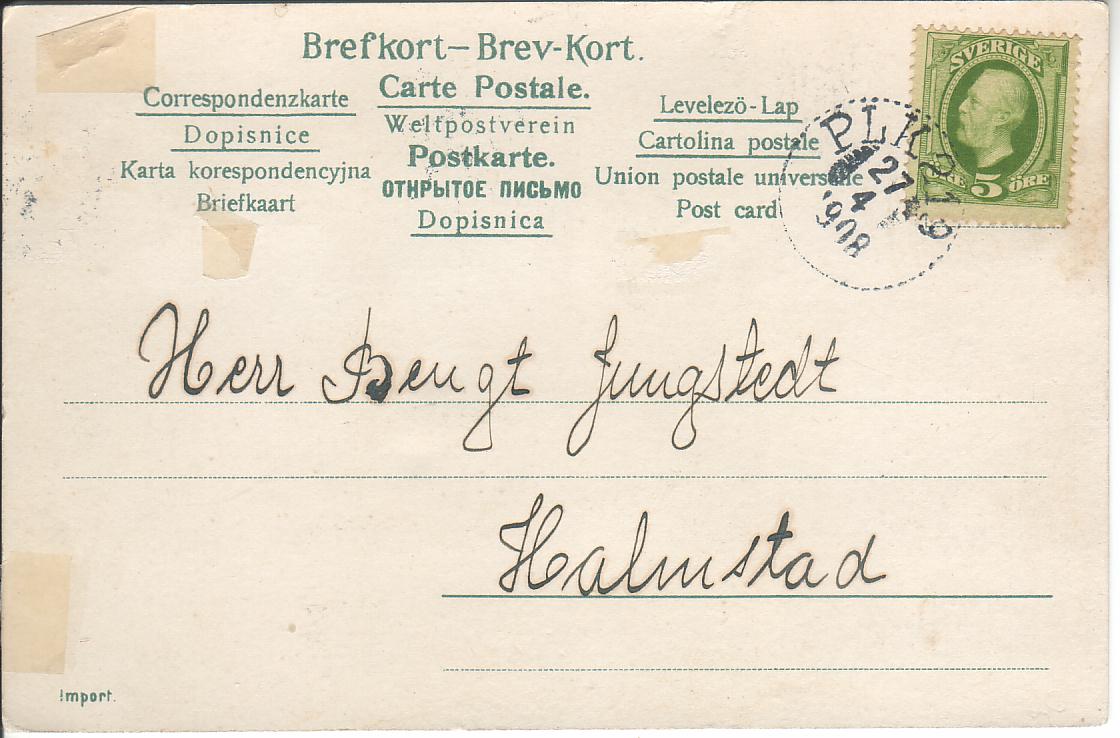 Brefkort – Brev-Kort.
Carte Postale.
Correspondenzkarte
Weltpostverein
Levelező-Lap
Dopisnice
Postkarte.
Cartolina postale
Karta korespondencyjna
ОТКРЫТОЕ ПИСЬМО
Union postale universelle
Briefkaart
Dopisnica
Post card
SVERIGE
5 ÖRE
PLK
27
4
1908
Herr Bengt Jungstedt
Halmstad
Import.